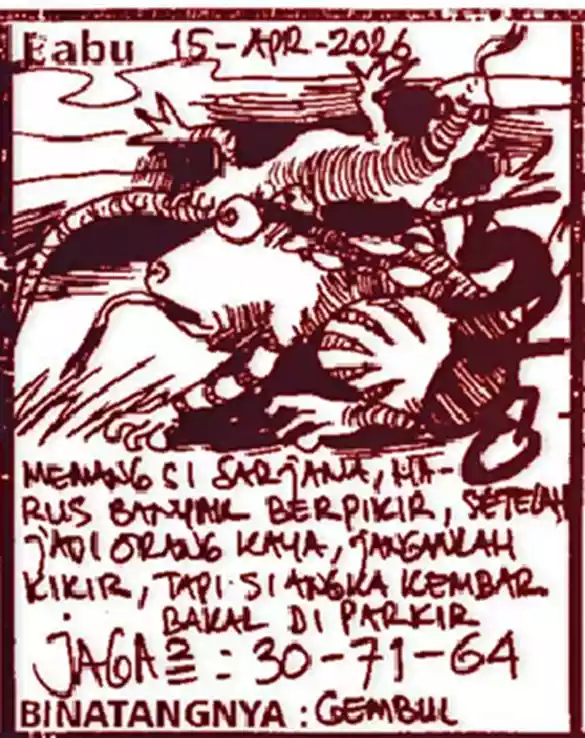 Rabu 15-APR-2026
MEMANG SI SARJANA, HA-
RUS BANYAK BERPIKIR, SETELAH
JADI ORANG KAYA, JANGANLAH
KIKIR, TAPI SI ANGKA KEMBAR
BAKAL DI PARKIR
JAGA2 : 30-71-64
BINATANGNYA : GEMBUL